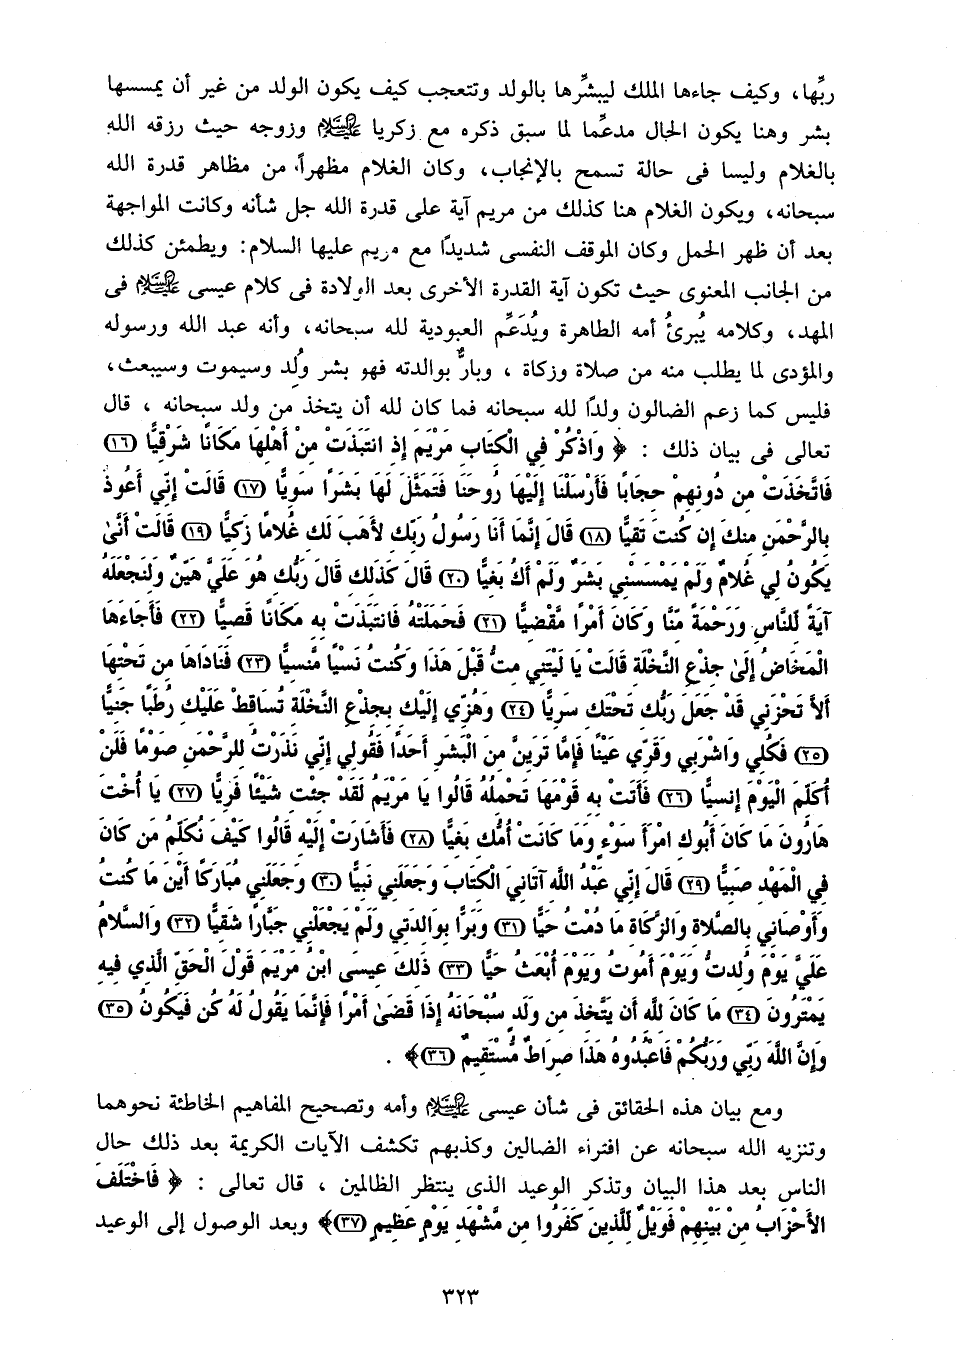 ربِّها، وكيف جاءها الملك ليبشِّرها بالولد وتتعجب كيف يكون الولد من غير أن يمسسها
بشر وهنا يكون الحال مدعِّما لما سبق ذكره مع زكريا عليه السلام وزوجه حيث رزقه الله
بالغلام وليسا فى حالة تسمح بالإنجاب، وكان الغلام مظهراً من مظاهر قدرة الله
سبحانه، ويكون الغلام هنا كذلك من مريم آية على قدرة الله جل شأنه وكانت المواجهة
بعد أن ظهر الحمل وكان الموقف النفسى شديدًا مع مريم عليها السلام: ويطمئن كذلك
من الجانب المعنوى حيث تكون آية القدرة الأخرى بعد الولادة فى كلام عيسى عليه السلام فى
المهد، وكلامه يُبرئُ أمه الطاهرة ويُدَعِّم العبودية لله سبحانه، وأنه عبد الله ورسوله
والمؤدى لما يطلب منه من صلاة وزكاة ، وبارٌّ بوالدته فهو بشر وُلد وسيموت وسيبعث،
فليس كما زعم الضالون ولدًا لله سبحانه فما كان لله أن يتخذ من ولد سبحانه ، قال
تعالى فى بيان ذلك : ﴿ وَاذْكُرْ فِي الْكِتَابِ مَرْيَمَ إِذِ انتَبَذَتْ مِنْ أَهْلِهَا مَكَانًا شَرْقِيًّا (١٦)
فَاتَّخَذَتْ مِن دُونِهِمْ حِجَابًا فَأَرْسَلْنَا إِلَيْهَا رُوحَنَا فَتَمَثَّلَ لَهَا بَشَرًا سَوِيًّا (١٧) قَالَتْ إِنِّي أَعُوذُ
بِالرَّحْمَنِ مِنكَ إِن كُنتَ تَقِيًّا (١٨) قَالَ إِنَّمَا أَنَا رَسُولُ رَبِّكِ لأَهَبَ لَكِ غُلامًا زَكِيًّا (١٩) قَالَتْ أَنَّىٰ
يَكُونُ لِي غُلامٌ وَلَمْ يَمْسَسْنِي بَشَرٌ وَلَمْ أَكُ بَغِيًّا (٢٠) قَالَ كَذَلِكِ قَالَ رَبُّكِ هُوَ عَلَيَّ هَيِّنٌ وَلِنَجْعَلَهُ
آيَةً لِّلنَّاسِ وَرَحْمَةً مِّنَّا وَكَانَ أَمْرًا مَّقْضِيًّا (٢١) فَحَمَلَتْهُ فَانتَبَذَتْ بِهِ مَكَانًا قَصِيًّا (٢٢) فَأَجَاءَهَا
الْمَخَاضُ إِلَىٰ جِذْعِ النَّخْلَةِ قَالَتْ يَا لَيْتَنِي مِتُّ قَبْلَ هَذَا وَكُنتُ نَسْيًا مَّنسِيًّا (٢٣) فَنَادَاهَا مِن تَحْتِهَا
أَلاَّ تَحْزَنِي قَدْ جَعَلَ رَبُّكِ تَحْتَكِ سَرِيًّا (٢٤) وَهُزِّي إِلَيْكِ بِجِذْعِ النَّخْلَةِ تُسَاقِطْ عَلَيْكِ رُطَبًا جَنِيًّا
(٢٥) فَكُلِي وَاشْرَبِي وَقَرِّي عَيْنًا فَإِمَّا تَرَيِنَّ مِنَ الْبَشَرِ أَحَدًا فَقُولِي إِنِّي نَذَرْتُ لِلرَّحْمَنِ صَوْمًا فَلَنْ
أُكَلِّمَ الْيَوْمَ إِنسِيًّا (٢٦) فَأَتَتْ بِهِ قَوْمَهَا تَحْمِلُهُ قَالُوا يَا مَرْيَمُ لَقَدْ جِئْتِ شَيْئًا فَرِيًّا (٢٧) يَا أُخْتَ
هَارُونَ مَا كَانَ أَبُوكِ امْرَأَ سَوْءٍ وَمَا كَانَتْ أُمُّكِ بَغِيًّا (٢٨) فَأَشَارَتْ إِلَيْهِ قَالُوا كَيْفَ نُكَلِّمُ مَن كَانَ
فِي الْمَهْدِ صَبِيًّا (٢٩) قَالَ إِنِّي عَبْدُ اللَّهِ آتَانِيَ الْكِتَابَ وَجَعَلَنِي نَبِيًّا (٣٠) وَجَعَلَنِي مُبَارَكًا أَيْنَ مَا كُنتُ
وَأَوْصَانِي بِالصَّلاةِ وَالزَّكَاةِ مَا دُمْتُ حَيًّا (٣١) وَبَرًّا بِوَالِدَتِي وَلَمْ يَجْعَلْنِي جَبَّارًا شَقِيًّا (٣٢) وَالسَّلامُ
عَلَيَّ يَوْمَ وُلِدتُّ وَيَوْمَ أَمُوتُ وَيَوْمَ أُبْعَثُ حَيًّا (٣٣) ذَلِكَ عِيسَى ابْنُ مَرْيَمَ قَوْلَ الْحَقِّ الَّذِي فِيهِ
يَمْتَرُونَ (٣٤) مَا كَانَ لِلَّهِ أَن يَتَّخِذَ مِن وَلَدٍ سُبْحَانَهُ إِذَا قَضَىٰ أَمْرًا فَإِنَّمَا يَقُولُ لَهُ كُن فَيَكُونُ (٣٥)
وَإِنَّ اللَّهَ رَبِّي وَرَبُّكُمْ فَاعْبُدُوهُ هَذَا صِرَاطٌ مُّسْتَقِيمٌ (٣٦)﴾ .
ومع بيان هذه الحقائق فى شأن عيسى عليه السلام وأمه وتصحيح المفاهيم الخاطئة نحوهما
وتنزيه الله سبحانه عن افتراء الضالين وكذبهم تكشف الآيات الكريمة بعد ذلك حال
الناس بعد هذا البيان وتذكر الوعيد الذى ينتظر الظالمين ، قال تعالى : ﴿ فَاخْتَلَفَ
الأَحْزَابُ مِنْ بَيْنِهِمْ فَوَيْلٌ لِّلَّذِينَ كَفَرُوا مِن مَّشْهَدِ يَوْمٍ عَظِيمٍ (٣٧)﴾ وبعد الوصول إلى الوعيد
٣٢٣